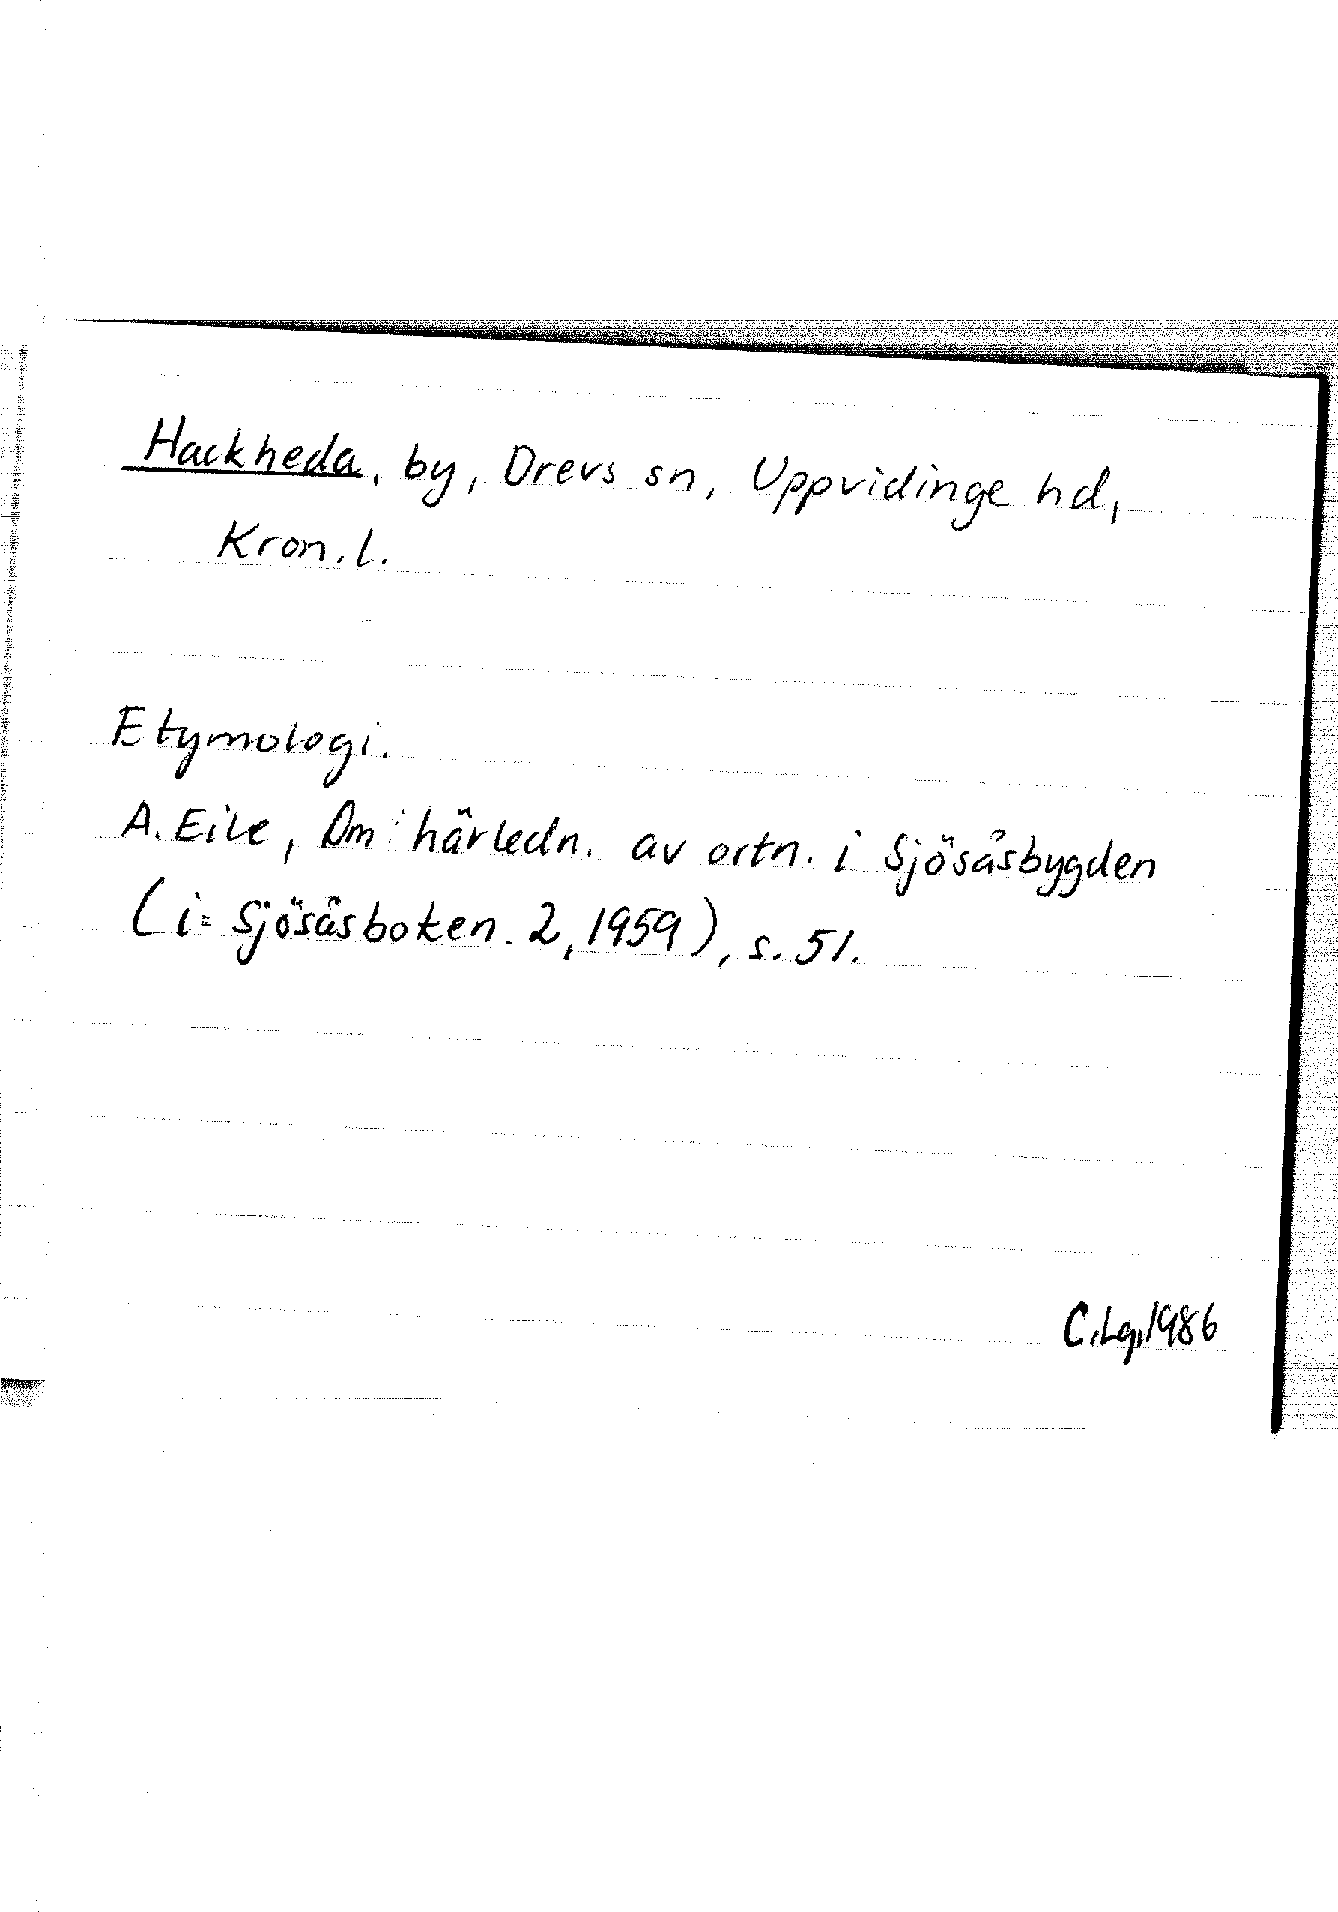 Hackheda, by, Drevs sn, Uppvidinge hd,
Kron.l.
Etymologi.
A. Eile, Om härledn. av ortn. i Sjösåsbygden
(i: Sjösåsboken. 2, 1959), s. 51.
C.Lg,1986